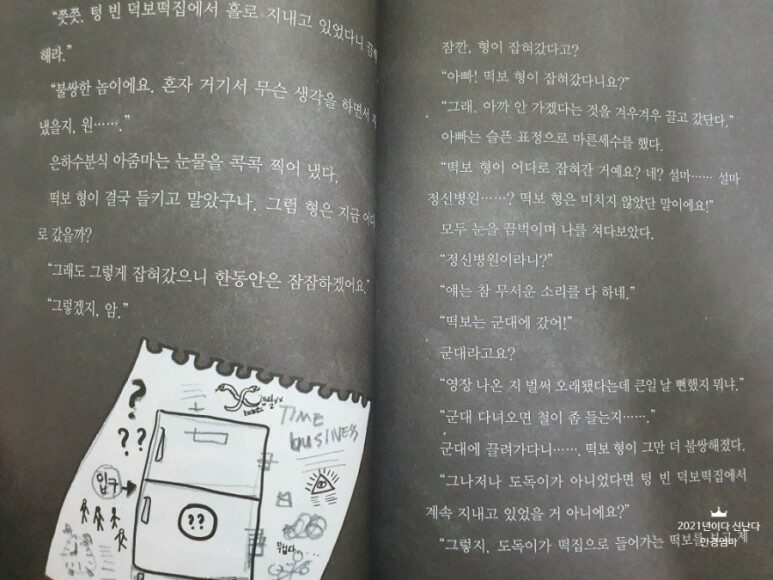 “쯧쯧. 텅 빈 덕보떡집에서 홀로 지내고 있었다니
해라.”
“불쌍한 놈이에요. 혼자 거기서 무슨 생각을 하면서
냈을지, 원…….”
은하수분식 아줌마는 눈물을 콕콕 찍어 냈다.
떡보 형이 결국 들키고 말았구나. 그럼 형은 지금
로 갔을까?
“그래도 그렇게 잡혀갔으니 한동안은 잠잠하겠어요.”
“그렇겠지, 암.”
TIME
buSINESS
?
? ?
입구
??
잠깐, 형이 잡혀갔다고?
“아빠! 떡보 형이 잡혀갔다니요?”
“그래. 아까 안 가겠다는 것을 겨우겨우 끌고 갔단다.”
아빠는 슬픈 표정으로 마른세수를 했다.
“떡보 형이 어디로 잡혀간 거예요? 네? 설마…… 설마
정신병원……? 떡보 형은 미치지 않았단 말이에요!”
모두 눈을 끔벅이며 나를 쳐다보았다.
“정신병원이라니?”
“얘는 참 무서운 소리를 다 하네.”
“떡보는 군대에 갔어!”
군대라고요?
“영장 나온 지 벌써 오래됐다는데 큰일 날 뻔했지 뭐냐.”
“군대 다녀오면 철이 좀 들는지…….”
군대에 끌려가다니……. 떡보 형이 그만 더 불쌍해졌다.
“그나저나 도둑이가 아니었다면 텅 빈 덕보떡집에서
계속 지내고 있었을 거 아니에요?”
“그렇지. 도둑이가 떡집으로 들어가는 떡보를 보고 제
2021년이다 신난다
안경엄마